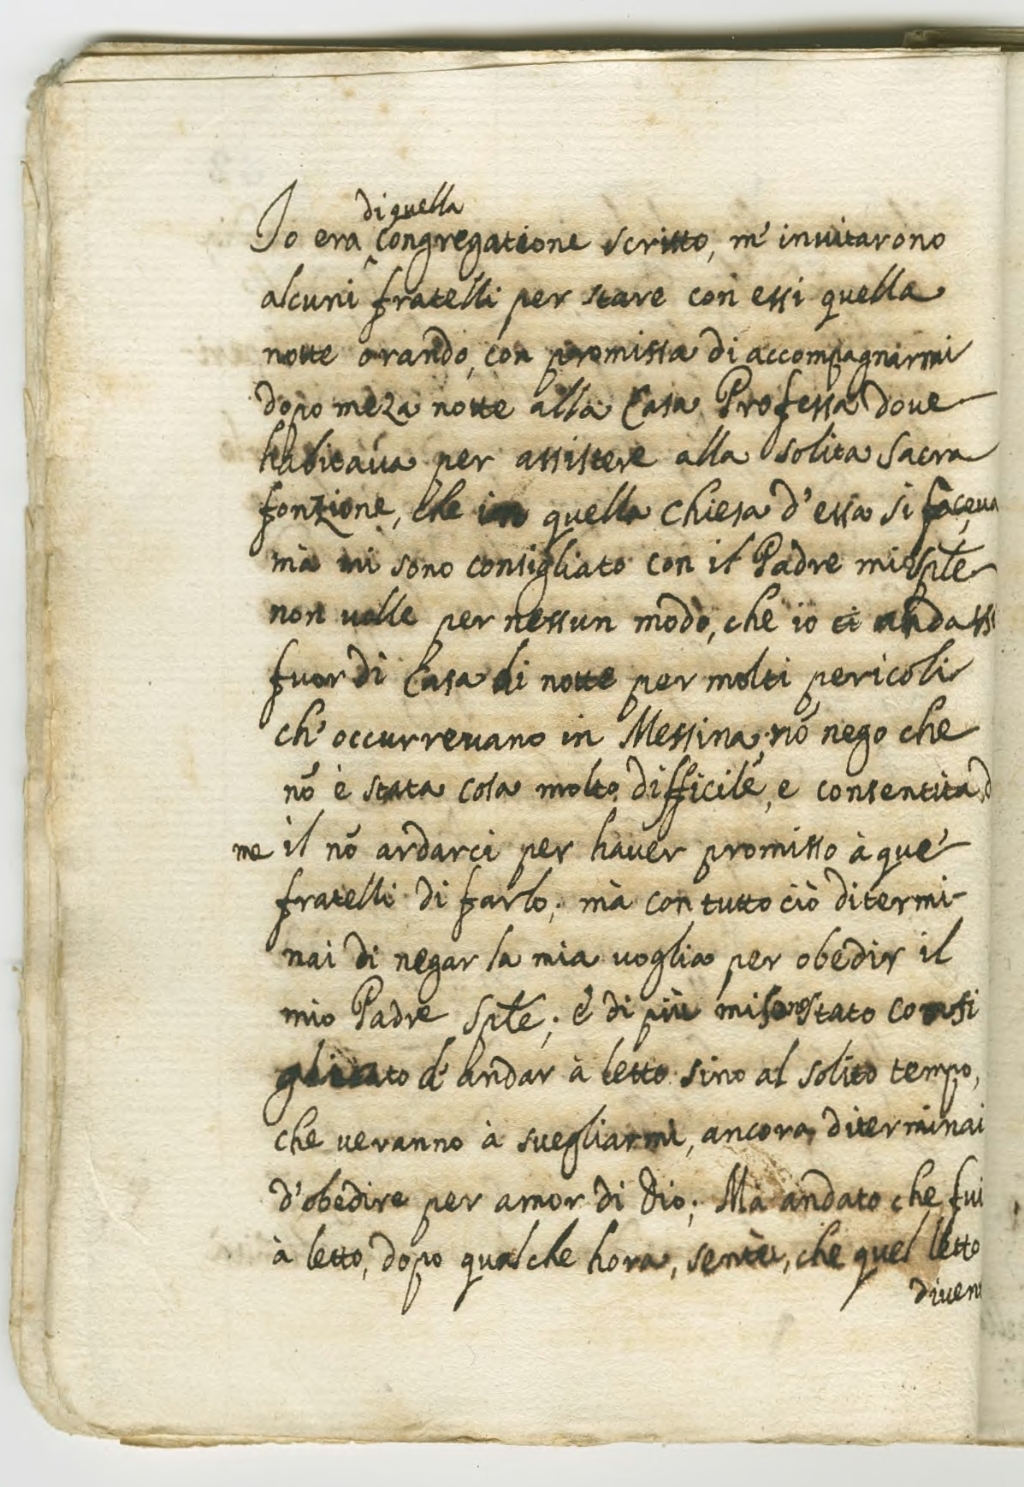 di quella
Io era congregatione scritto, m'invitarono
alcuni fratelli per stare con essi quella
notte orando, con promissa di accompagnarmi
dopo meza notte alla Casa Professa dove
habitava per assistere alla solita sacra
fonzione, che in quella chiesa d'essa si faceva
mà mi sono consigliato con il Padre mio Spt̃e
non volle per nessun modo, che io ci andassi
fuor di Casa di notte per molti pericoli
ch'occurrevano in Messina, nõ nego che
nõ è stata cosa molto difficile, e consentita d
me il nõ andarci per haver promisso à que'
fratelli di farlo; mà con tutto ciò ditermi-
nai di negar la mia voglia per obedir il
mio Padre Spt̃e; è di più mi fu stato consi
gliato d'andar à letto sino al solito tempo,
che veranno à svegliarmi, ancora diterminai
d'obedire per amor di Dio; Mà andato che fui
à letto, dopo qualche hora, sentè, che quel letto
diven